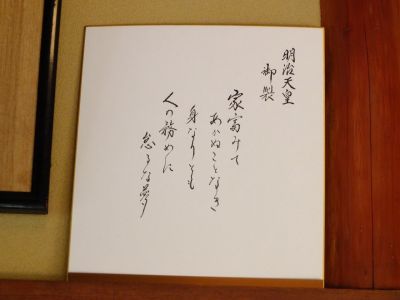 明治天皇
御製
家富みて
あかぬことなき
身なりとも
人の務めに
怠るな夢